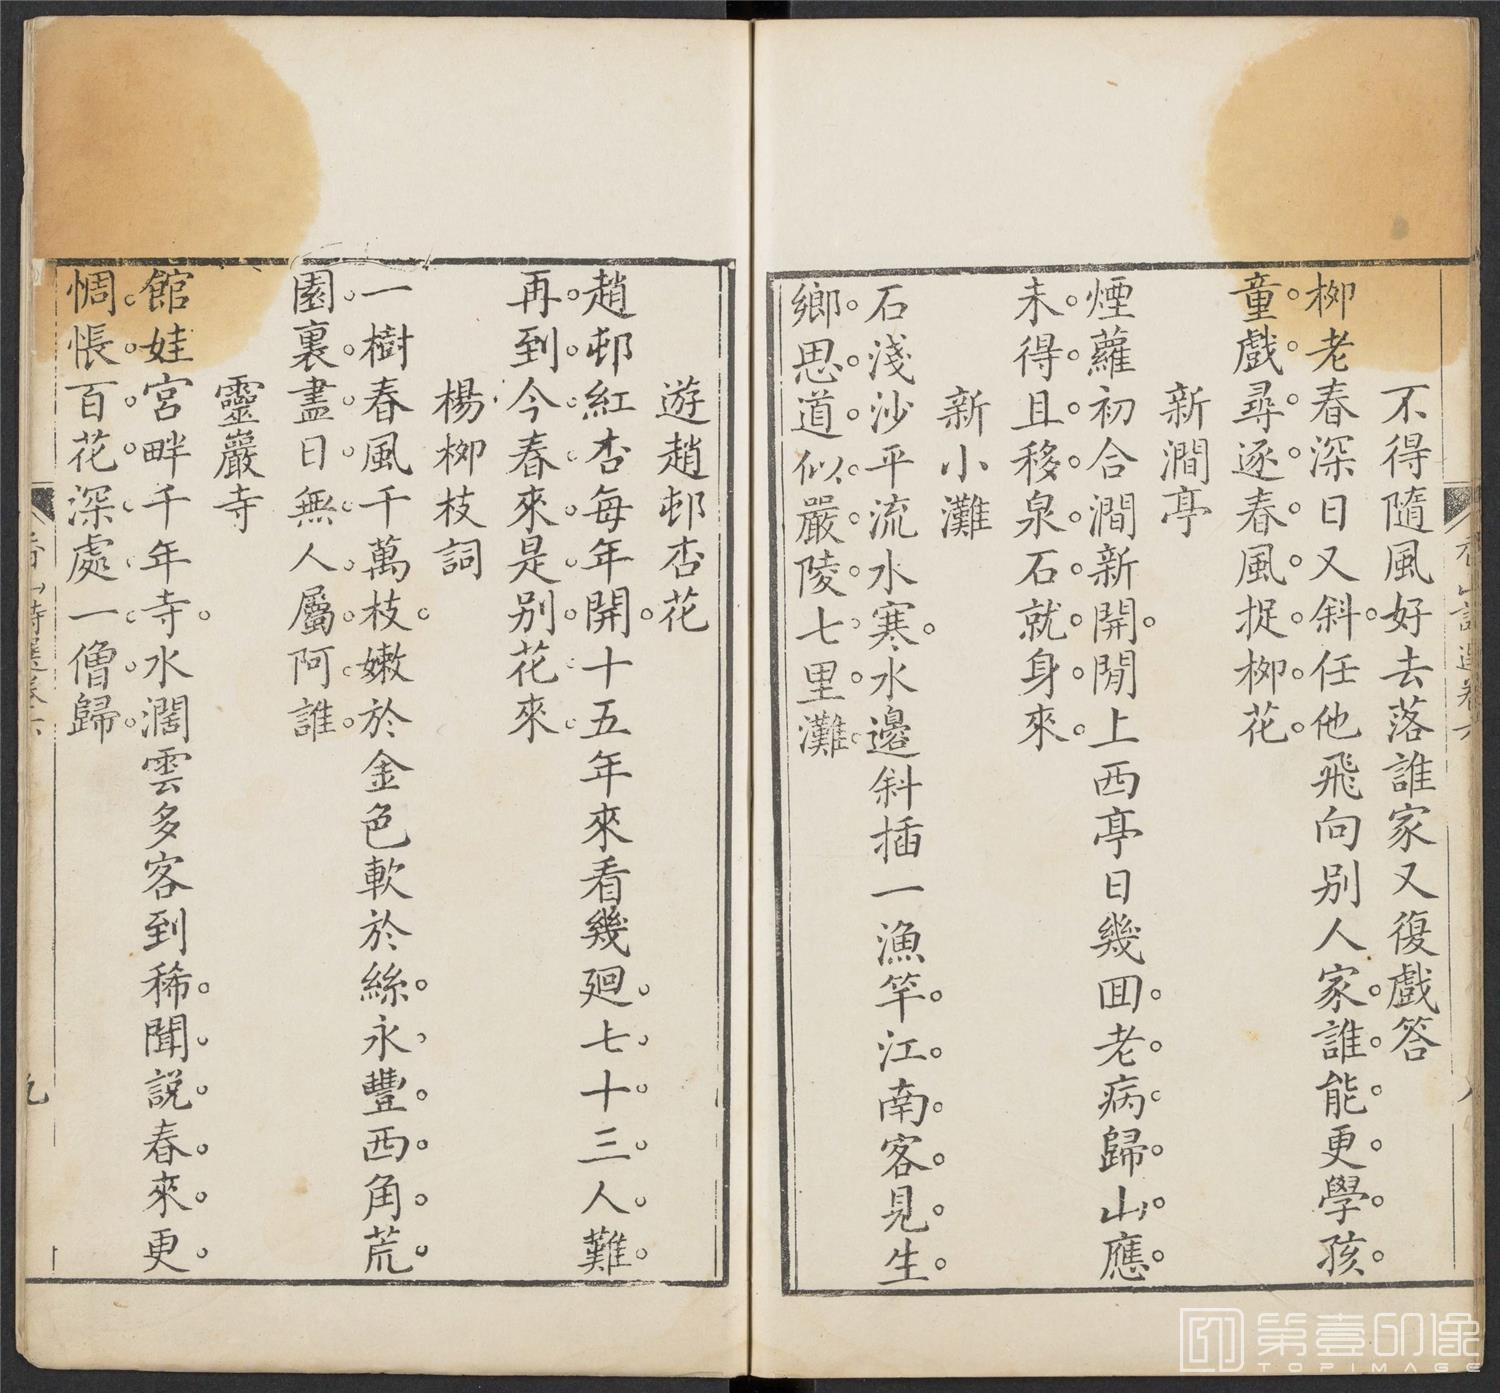 不得隨風好去落誰家又復戲答
栁老春深日又斜任他飛向別人家誰能更學孩
童戲尋逐春風捉栁花
新澗亭
煙蘿初合澗新開閒上西亭日幾囬老病歸山應
未得且移泉石就身來
新小灘
石淺沙平流水寒水邊斜插一漁竿江南客見生
鄉思道似嚴陵七里灘
遊趙邨杏花
趙邨紅杏每年開十五年來看幾廻七十三人難
再到今春來是別花來
楊栁枝詞
一樹春風千萬枝嫩於金色軟於絲永豐西角荒
園裏盡日無人屬阿誰
靈巖寺
館娃宮畔千年寺水濶雲多客到稀聞説春來更
惆悵百花深處一僧歸
香山詩選卷六
九
第壹印像
TOPIMAGE